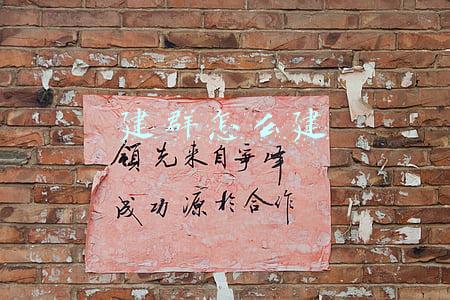 建群怎么建
领先来自争峰
成功源於合作